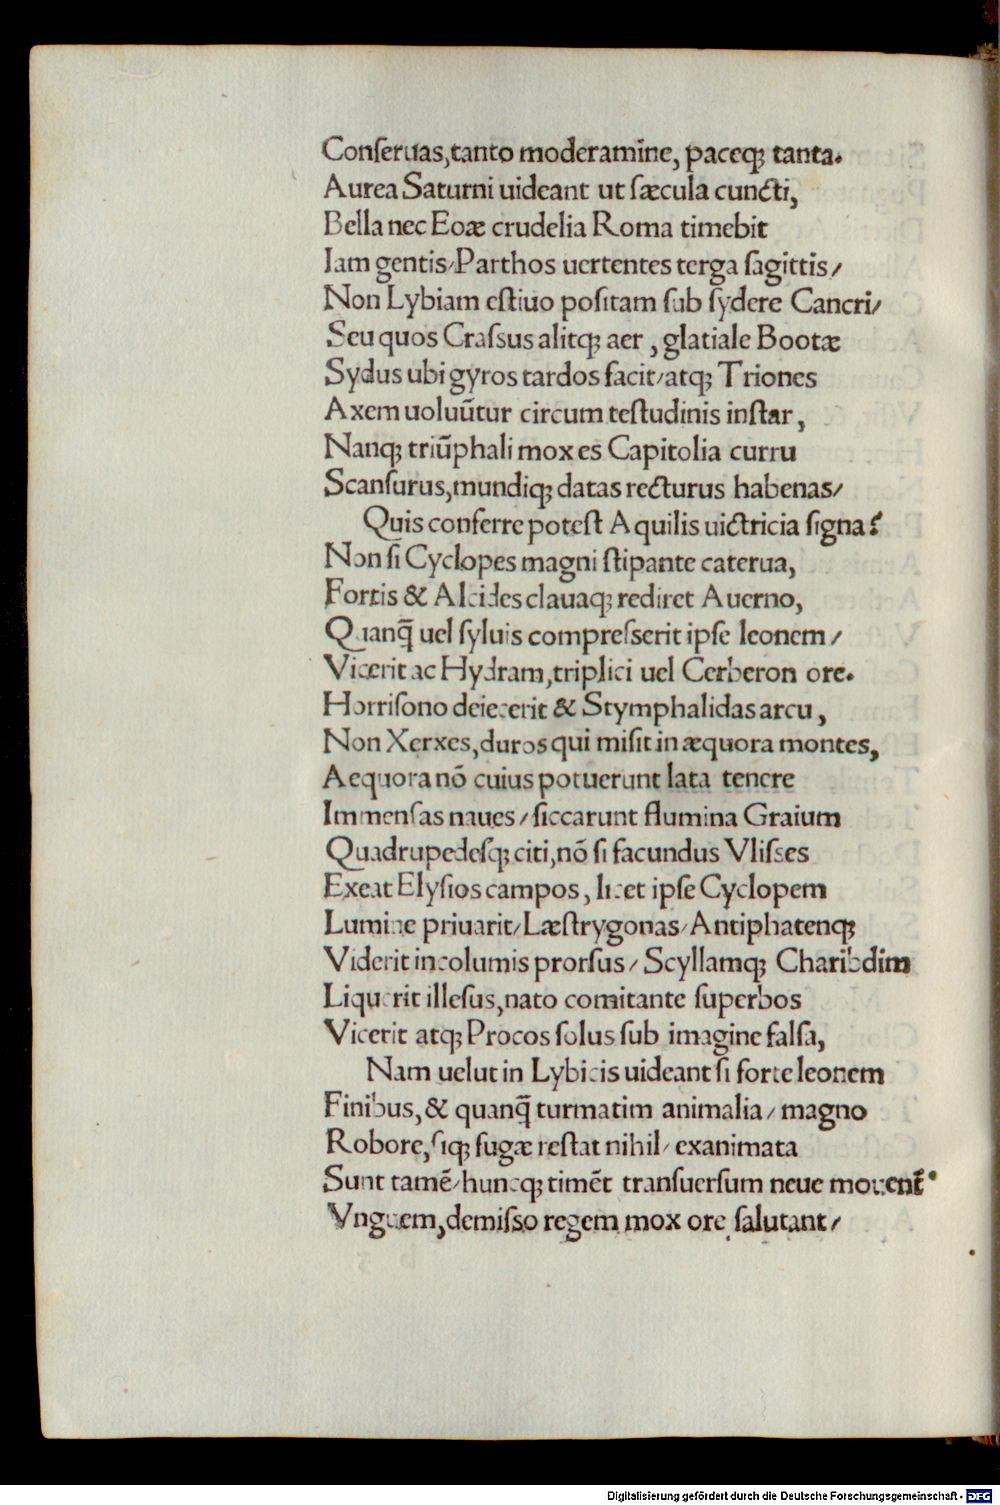 Conſeruas, tanto moderamine, paceq; tanta.
Aurea Saturni uideant ut ſæcula cuncti,
Bella nec Eoæ crudelia Roma timebit
Iam gentis/Parthos uertentes terga ſagittis/
Non Lybiam eſtiuo poſitam ſub ſydere Cancri/
Seu quos Craſſus alitq; aer , glatiale Bootæ
Sydus ubi gyros tardos facit/atq; Triones
Axem uoluūtur circum teſtudinis inſtar,
Nanq; triūphali mox es Capitolia curru
Scanſurus, mundiq; datas recturus habenas/
Quis conferre poteſt Aquilis uictricia ſigna?
Non ſi Cyclopes magni ſtipante caterua,
Fortis & Alcides clauaq; rediret Auerno,
Quanq̄ uel ſyluis compreſſerit ipſe leonem/
Vicerit ac Hydram, triplici uel Cerberon ore.
Horriſono deiecerit & Stymphalidas arcu,
Non Xerxes, duros qui miſit in æquora montes,
Aequora nō cuius potuerunt lata tenere
Immenſas naues/ſiccarunt flumina Graium
Quadrupedeſq; citi, nō ſi facundus Vliſſes
Exeat Elyſios campos, licet ipſe Cyclopem
Lumine priuarit/Læſtrygonas/Antiphatenq;
Viderit incolumis prorſus/Scyllamq; Charibdim
Liquerit illeſus, nato comitante ſuperbos
Vicerit atq; Procos ſolus ſub imagine falſa,
Nam uelut in Lybicis uideant ſi forte leonem
Finibus, & quanq̄ turmatim animalia/magno
Robore, ſiq; fugæ reſtat nihil/exanimata
Sunt tamē/huncq; timēt tranſuerſum neue mouent̄
Vnguem, demiſſo regem mox ore ſalutant/
Digitalisierung gefördert durch die Deutsche Forschungsgemeinschaft - DFG